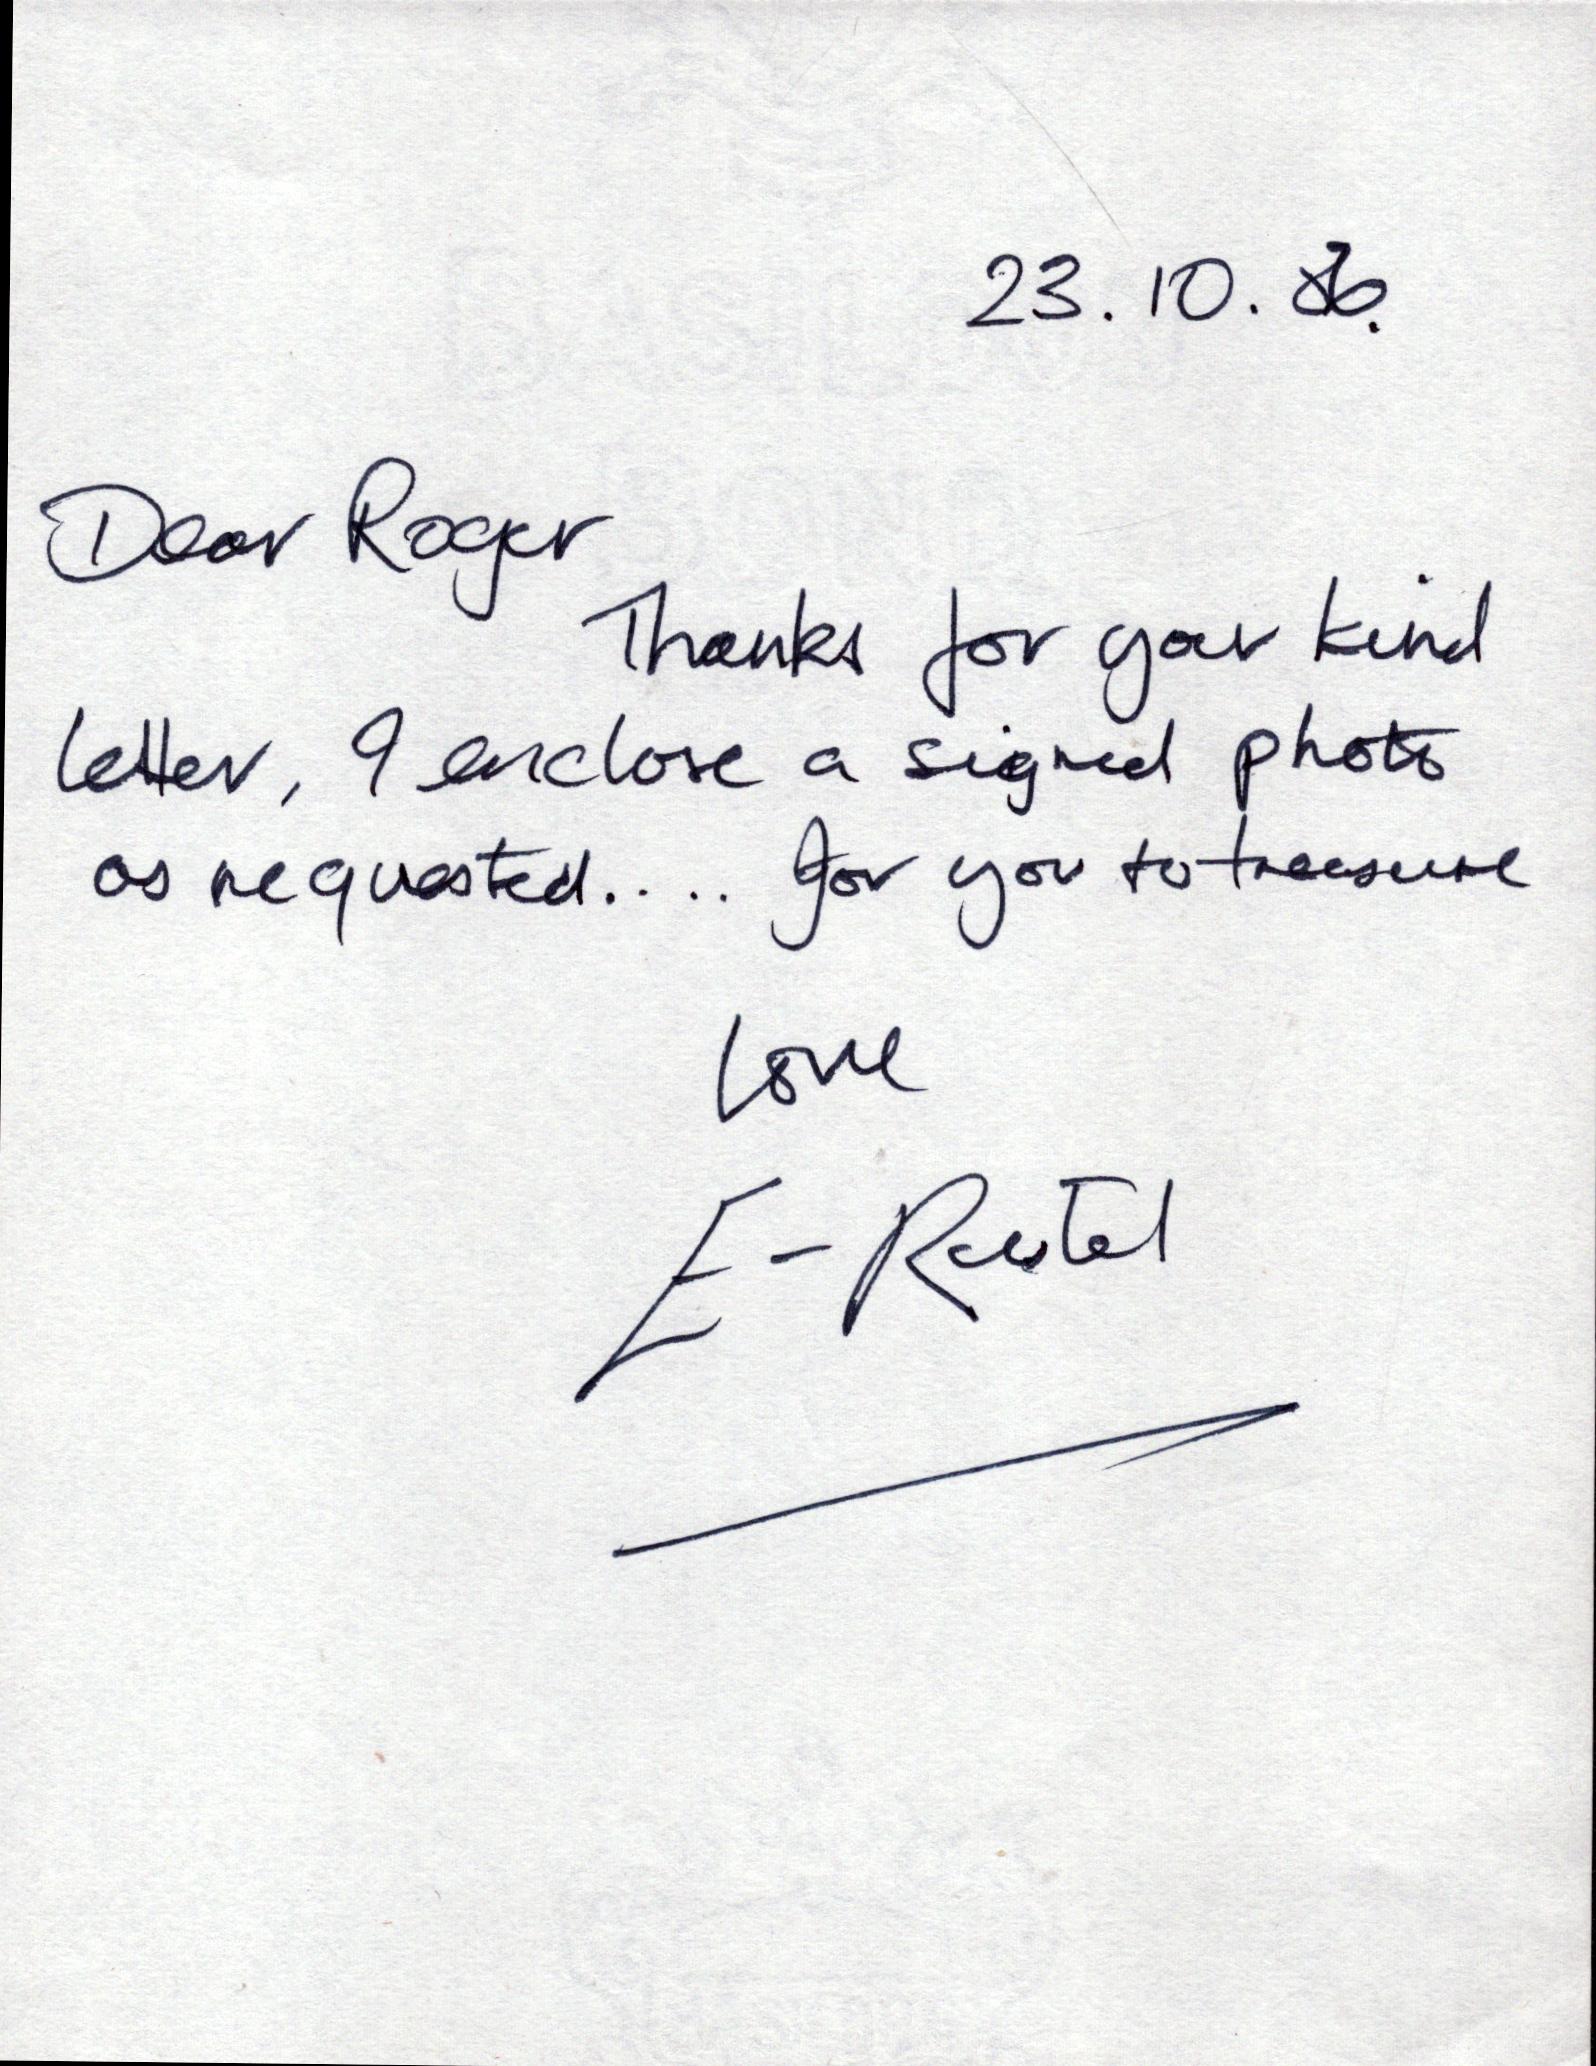 23.10.86.
Dear Roger
Thanks for your kind
letter, I enclose a signed photo
as requested.... for you to treasure
Love
E-